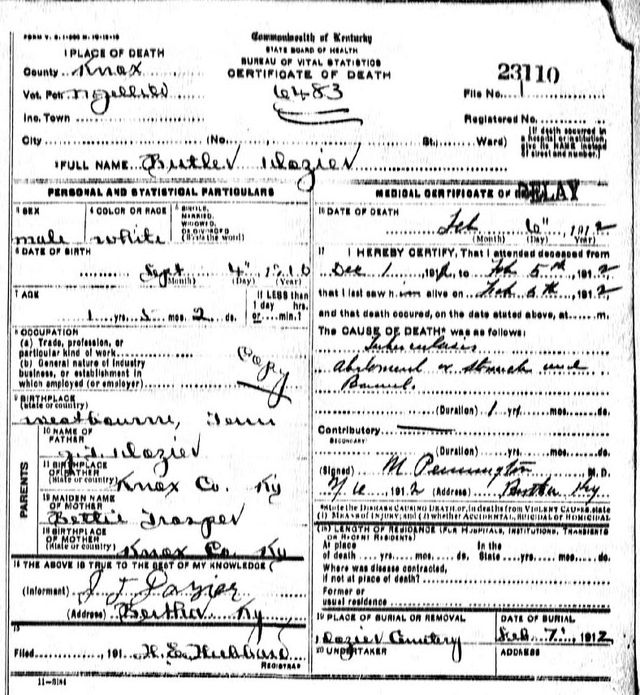 Commonwealth of Kentucky
STATE BOARD OF HEALTH
BUREAU OF VITAL STATISTICS
CERTIFICATE OF DEATH
1 PLACE OF DEATH
County Knox
Vot. Pct.
Inc. Town
City (No. St.; Ward)
6483
23110
File No. 1
Registered No.
(If death occurred in a hospital or institution, give its NAME instead of street and number.)
2 FULL NAME Butler Dozier
PERSONAL AND STATISTICAL PARTICULARS
3 SEX
male
4 COLOR OR RACE
white
5 SINGLE, MARRIED, WIDOWED, OR DIVORCED (Write the word)
6 DATE OF BIRTH
Sept 4", 1910
(Month) (Day) (Year)
7 AGE
1 yrs. 5 mos. 2 ds.
If LESS than 1 day hrs. or min.?
8 OCCUPATION
(a) Trade, profession, or particular kind of work
(b) General nature of industry business, or establishment in which employed (or employer)
Copy
9 BIRTHPLACE
(State or country)
Westbourne, Tenn
PARENTS
10 NAME OF FATHER
J. J. Dozier
11 BIRTHPLACE OF FATHER
(State or country) Knox Co. Ky
12 MAIDEN NAME OF MOTHER
Bettie Trosper
13 BIRTHPLACE OF MOTHER
(State or country) Knox Co. Ky
14 THE ABOVE IS TRUE TO THE BEST OF MY KNOWLEDGE
(Informant) J J Dozier
(Address) Bertha Ky
15
Filed , 191 H. E. Hubbard
REGISTRAR
MEDICAL CERTIFICATE OF
DELAY
16 DATE OF DEATH
Feb 6", 1912
(Month) (Day) (Year)
17 I HEREBY CERTIFY, That I attended deceased from
Dec 1, 191 to Feb 5th, 1912
that I last saw him alive on Feb 5th, 1912
and that death occured, on the date stated above, at m.
The CAUSE OF DEATH* was as follows:
Tuberculosis
Abdominal or Stomach and
Bowels
(Duration) 1 yrs. mos. ds.
Contributory
SECONDARY
(Duration) yrs. mos. ds.
(Signed) M. Pennington M. D.
1912 (Address) Bertha Ky
*State the DISEASE CAUSING DEATH, or, in deaths from VIOLENT CAUSES, state (1) MEANS OF INJURY; and (2) whether ACCIDENTAL, SUICIDAL or HOMICIDAL
18 LENGTH OF RESIDENCE (FOR HOSPITALS, INSTITUTIONS, TRANSIENTS OR RECENT RESIDENTS)
At place of death yrs. mos. ds. In the State yrs. mos. ds.
Where was disease contracted, if not at place of death?
Former or usual residence
19 PLACE OF BURIAL OR REMOVAL
Dozier Cemetery
DATE OF BURIAL
Feb. 7", 1912
20 UNDERTAKER
ADDRESS